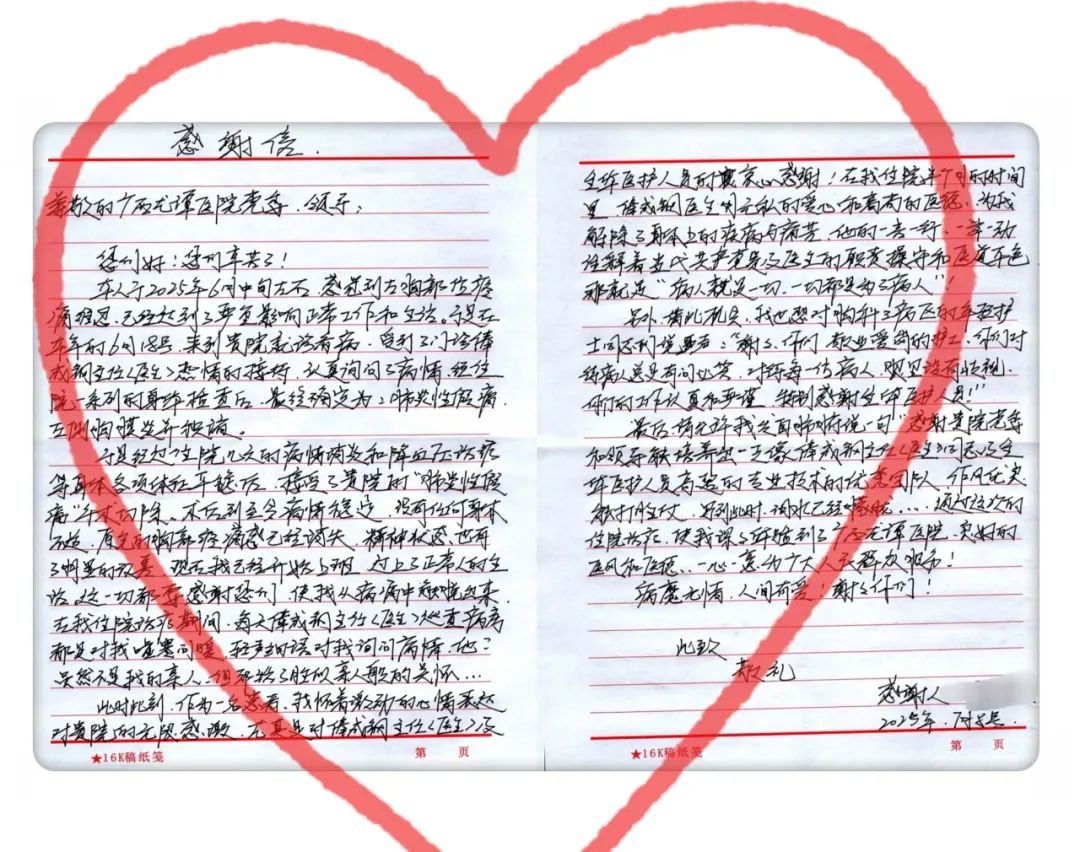 感谢信.
尊敬的广西龙潭医院党委、领导;
您们好!您们辛苦了!
本人于2025年6月中旬左右,感觉到左胸部位疼
痛难忍,已经达到了严重影响正常工作和生活。于是在
本年的6月18号,来到贵院就诊看病,受到了门诊
成钢主任<医生>热情的接待,认真询问了病情,经住
院一系列的身体检查后,最终确定为:肺炎性假瘤,
左侧胸膜炎并粘连。
于是经过住院几天的病情消炎和降血压治疗
等身体各项体征平稳后,接受了贵院的"肺炎性假
瘤"手术切除。术后到至今病情稳定,没有任何身体
不适,原先的胸部疼痛感已经消失,精神状态也有
了明显的改善,现在我已经开始上班,过上了正常人的生
活。这一切都要感谢您们,使我从病痛中解脱出来,
在我住院治疗期间,每天成钢主任<医生>巡查病房
都是对我嘘寒问暖,轻声细语对我询问病情,他:
虽然不是我的亲人,但却给了胜似亲人般的关怀...
此时此刻,作为一名患者,我怀着激动的心情表达
对贵院的无限感激,尤其是对成钢主任<医生>及
全体医护人员的衷心感谢!在我住院半个月的时间
里,成钢医生用无私的爱心和高尚的医德,为我
解除了身体上的疾病与痛苦,他的一言一行,一举一动
诠释着当代共产党员及医生的职责操守和医道本色
那就是"病人就是一切,一切都是为了病人"!
另外,借此机会,我也想对胸科三病区的年轻护
士同志们说声:"谢谢你们敬业爱岗的护工,你们对
待病人总是有问必答,对待每一位病人都没有歧视,
你们的工作认真和严谨,特别感谢全体医护人员!"
最后,请允许我发自肺腑说一句"感谢贵院党委
和领导能培养出一支像成钢主任<医生>同志及全
体医护人员高超的专业技术的优秀团队,作风优实
能打胜仗,写到此时,泪水已经模糊......通过这次的
住院治疗,使我深深体验到了广西龙潭医院,良好的
医风和医德...一心一意为广大人民群众服务!
病魔无情,人间有爱!谢谢你们!
此致
敬礼
感谢人
2025年.7月8号.
★16K稿纸笺 第 页
★16K稿纸笺 第 页